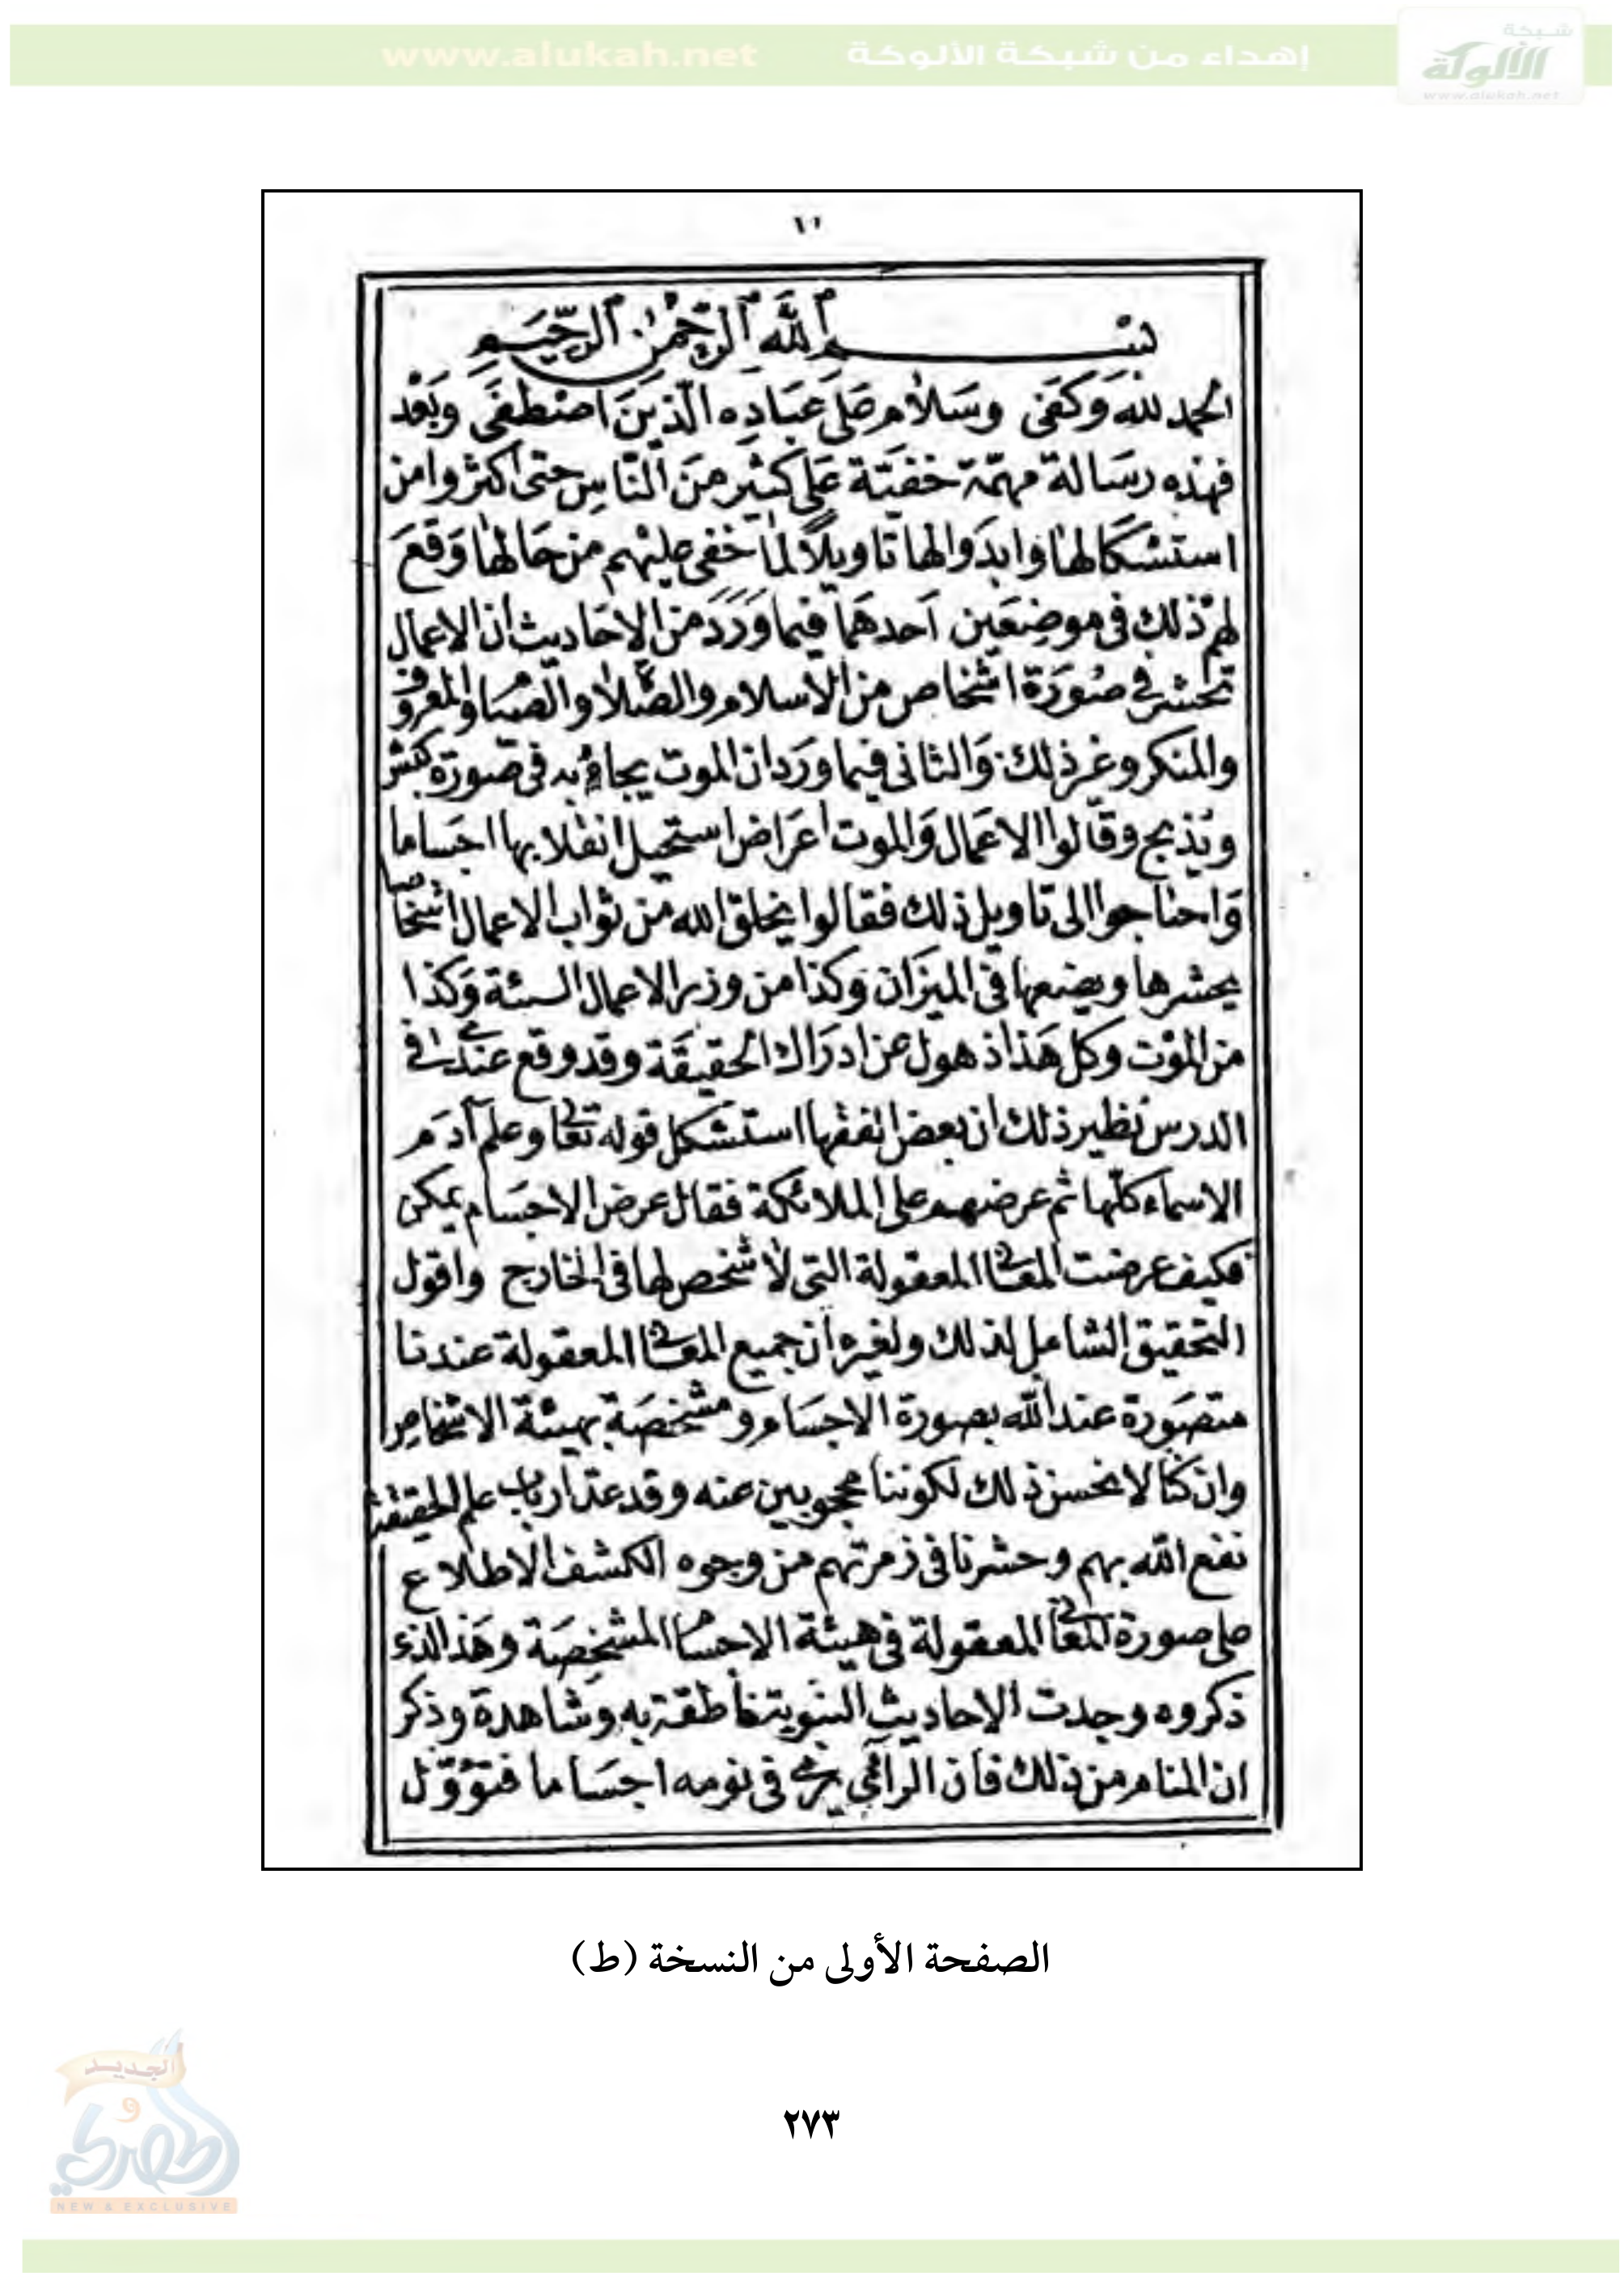 www.alukah.net إهداء من شبكة الألوكة
شبكة
الألوكة
www.alukah.net
بسم الله الرحمن الرحيم
الحمد لله وكفى وسلام على عباده الذين اصطفى وبعد
فهذه رسالة مهمة خفيت على كثير من الناس حتى اكثروا من
استشكالها وابدوا لها تاويلا لما خفى عليهم من حالها وقع
لهم ذلك فى موضعين احدهما فيما ورد من الاحاديث ان الاعمال
تحشر فى صورة اشخاص من الاسلام والصلاة والصيام والمعروف
والمنكر وغير ذلك والثانى فيما ورد ان الموت يجاء به فى صورة كبش
ويذبح وقالوا الاعمال والموت اعراض استحيل انقلابها اجساما
واحتاجوا الى تاويل ذلك فقالوا يخلق الله من ثواب الاعمال اشخاصا
يحشرها ويضعها فى الميزان وكذا من وزر الاعمال السئة وكذا
من الموت وكل هذا ذهول عن ادراك الحقيقة وقد وقع عندى فى
الدرس نظير ذلك ان بعض الفقها استشكل قوله تعالى وعلم آدم
الاسماء كلها ثم عرضهم على الملائكة فقال عرض الاجسام يمكن
فكيف عرضت المعانى المعقولة التى لا شخص لها فى الخارج واقول
التحقيق الشامل لذلك ولغيره ان جميع المعانى المعقولة عندنا
متصورة عند الله بصورة الاجسام ومشخصة بهيئة الاشخاص
وان كنا لا نحسن ذلك لكوننا محجوبين عنه وقد عد ارباب علم الحقيقة
نفع الله بهم وحشرنا فى زمرتهم من وجوه الكشف الاطلاع
على صورة المعانى المعقولة فى هيئة الاجسام المشخصة وهذا الذى
ذكروه وجدت الاحاديث النبوية ناطقة به وشاهدة وذكر
ان المنام من ذلك فان الرائى يرى فى نومه اجساما فتؤول
الصفحة الأولى من النسخة (ط)
الجديد
و
الحصري
NEW & EXCLUSIVE
٢٧٣